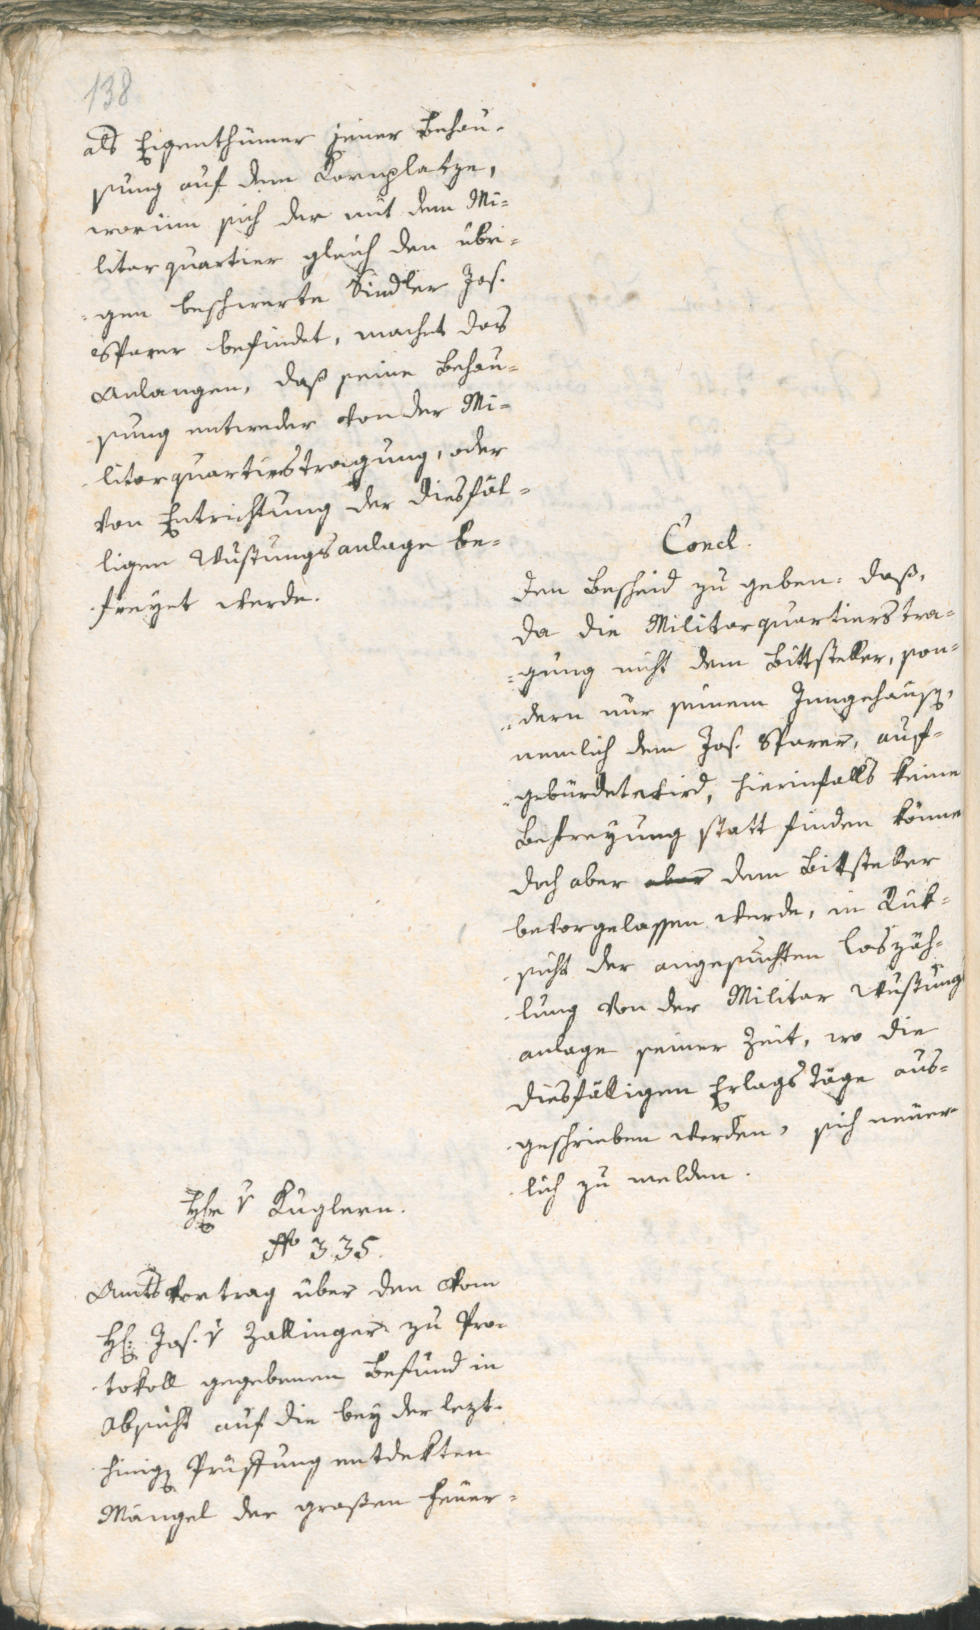 138
als Eigenthümer jener Behau-
sung auf dem Kornplatze,
worinn sich der mit dem Mi=
litar quartier gleich den übri=
=gen beschwerte Sindler Jos.
Sparer befindet, machet das
Anlangen, daß seine Behau=
sung entweder von der Mi=
litarquartierstragung, oder
von Entrichtung der diesfäl=
ligen Wustungsanlage be=
freyet werde.
Concl.
dem Bescheid zu geben: daß,
da die Militarquartierstra=
=gung nicht dem Bittsteller, son=
=dern nur seinem Inngehäusz,
nemlich dem Jos. Sparer, auf=
=gebürdet wird, hierinfalls keine
Befreyung statt finden könne
doch aber aber dem Bittsteller
bevorgelassen werde, in Rük=
sicht der angesuchten loszäh=
lung von der Militar Wustungs
anlage seiner Zeit, wo die
diesfälligen Erlags Täge aus=
geschrieben werden, sich neuer
lich zu melden.
Hr v Kuglern.
No 335.
Amtsvortrag über den vom
H: Jos. v Zallinger zu Pro-
tokoll gegebenen Befund in
Absicht auf die bey der lezt-
hinig Prüffung entdekten
Mängel der großen Feuer=